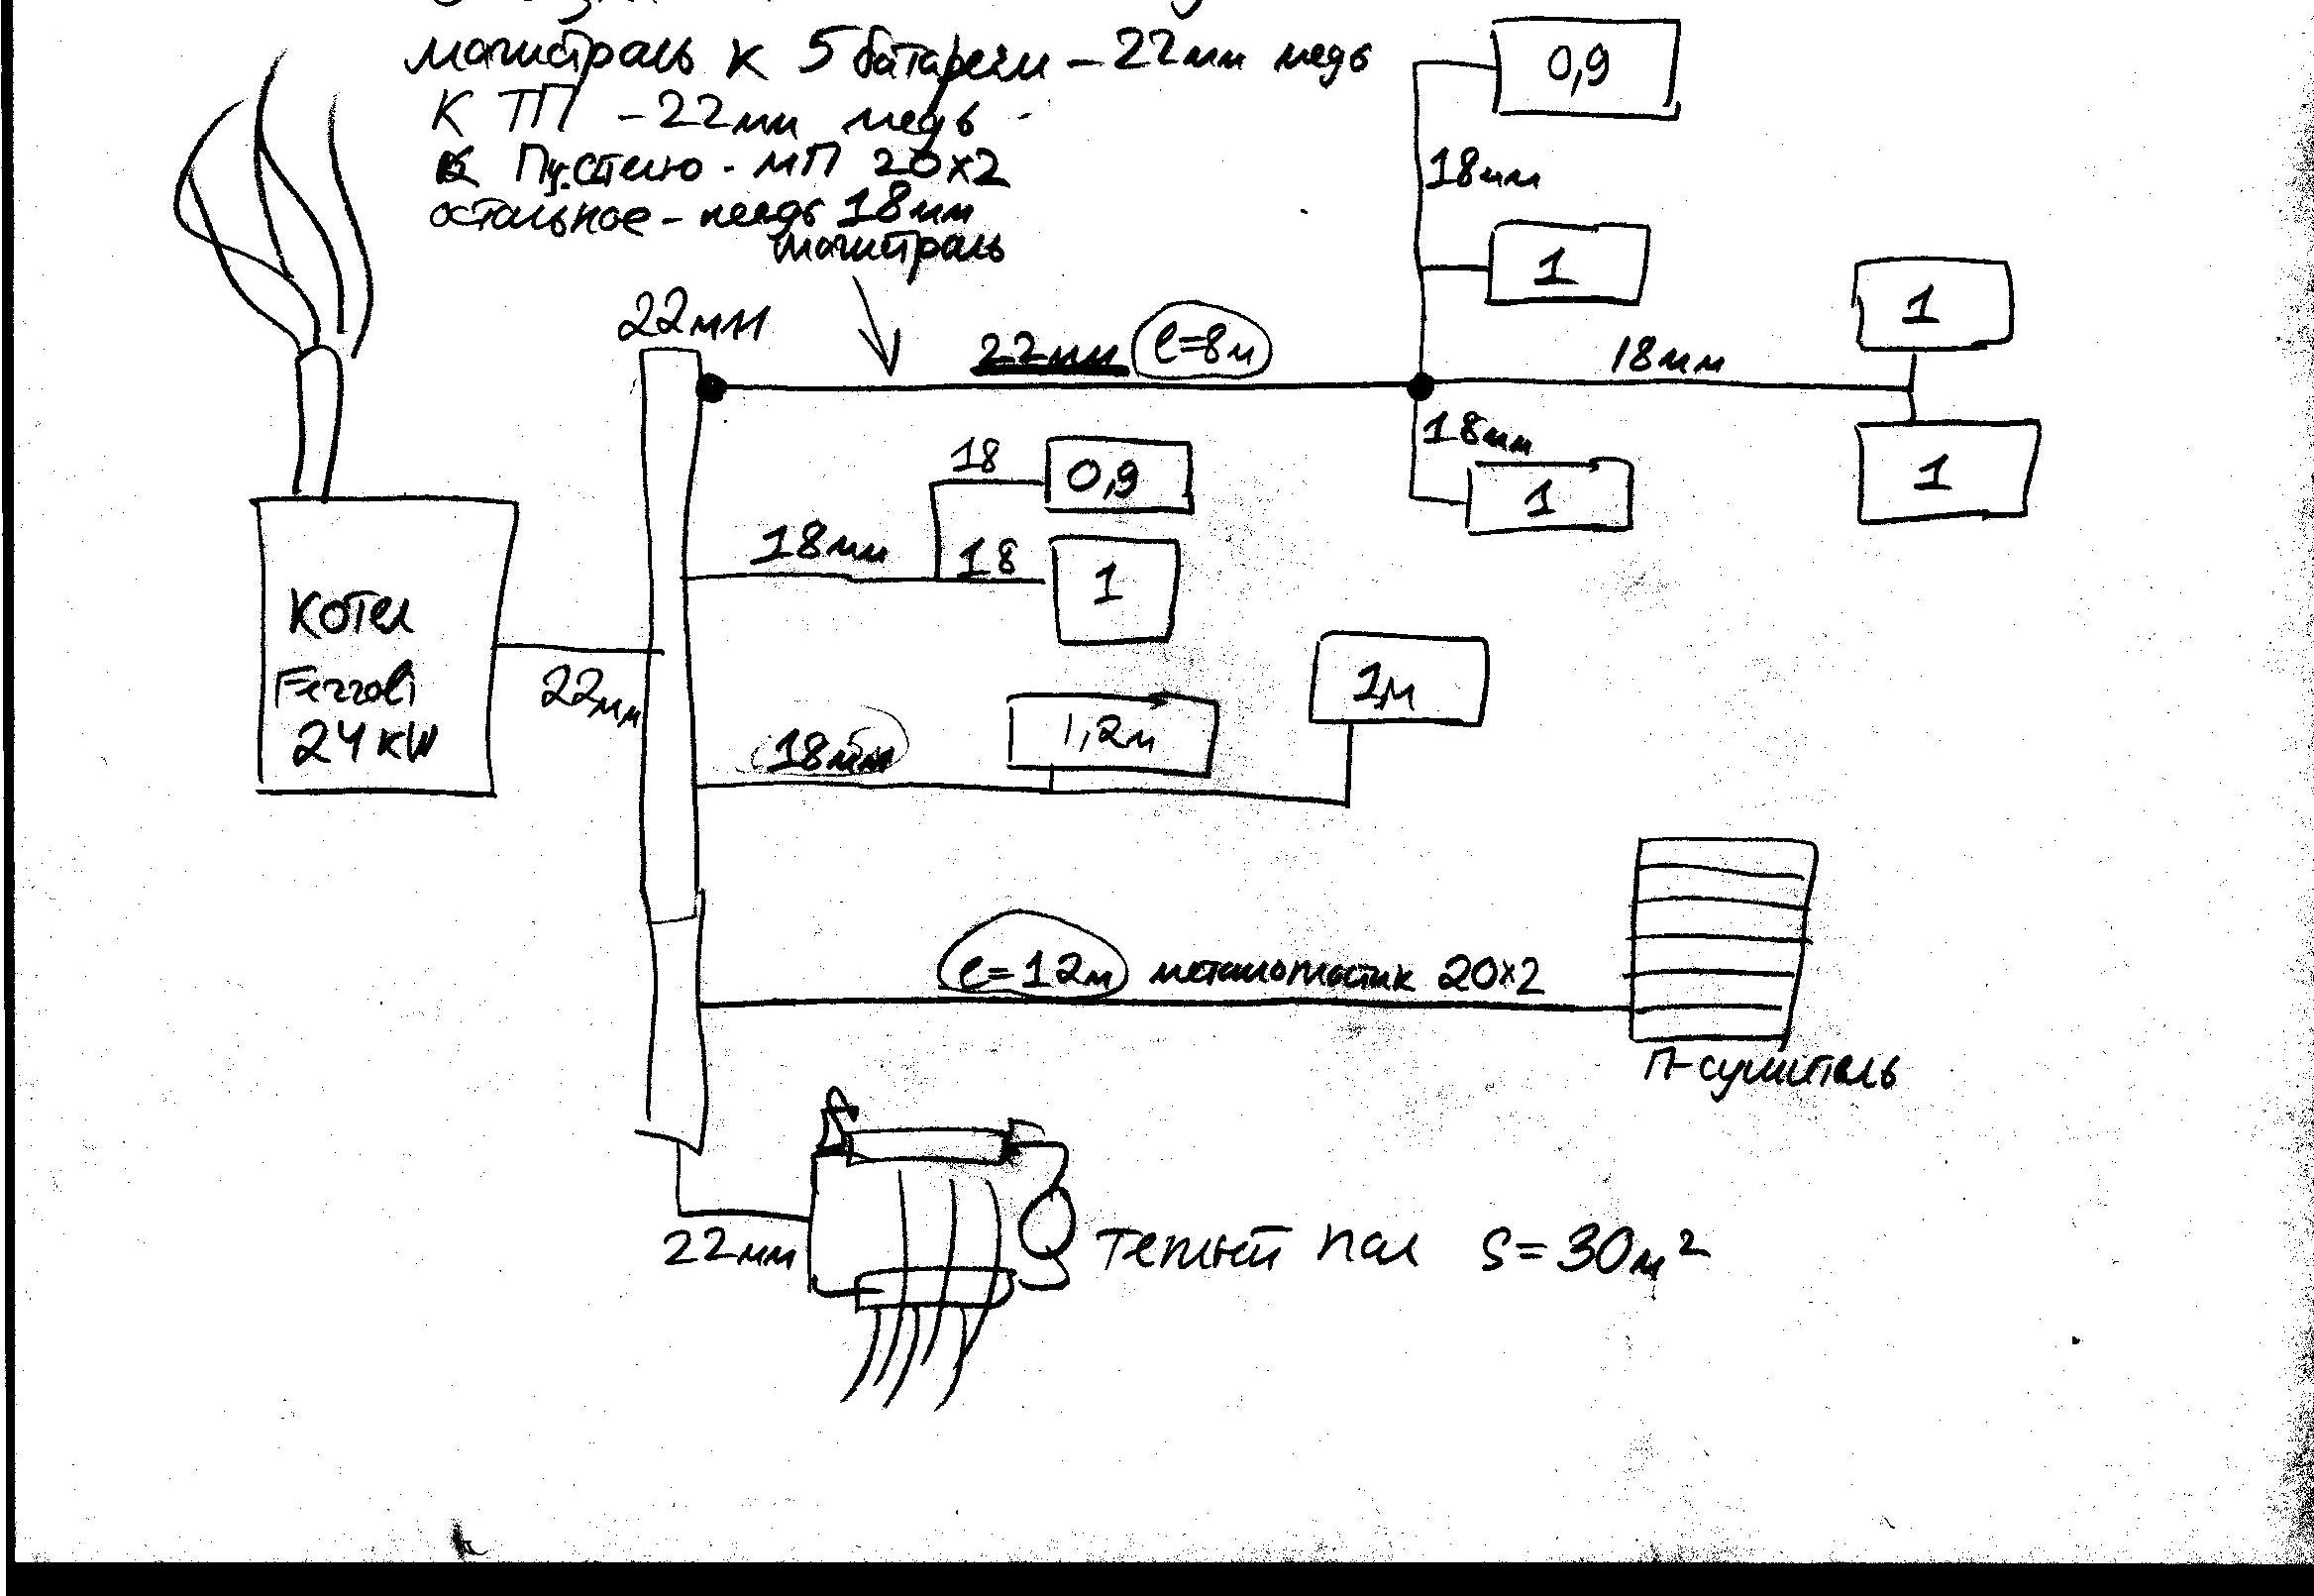 магистраль к 5 батареям – 22мм медь
К ТП – 22мм медь
К П.сителю - МП 20x2
остальное – медь 18мм
магистраль
22мм
22мм l=8м
0,9
18мм
1
18мм
1
18мм
1
1
18
0,9
18мм
18
1
Котел
Ferroli
24 kW
22мм
18мм
1,2м
1м
l=12м металопластик 20x2
П-сушитель
22мм
Теплый пол S=30м²